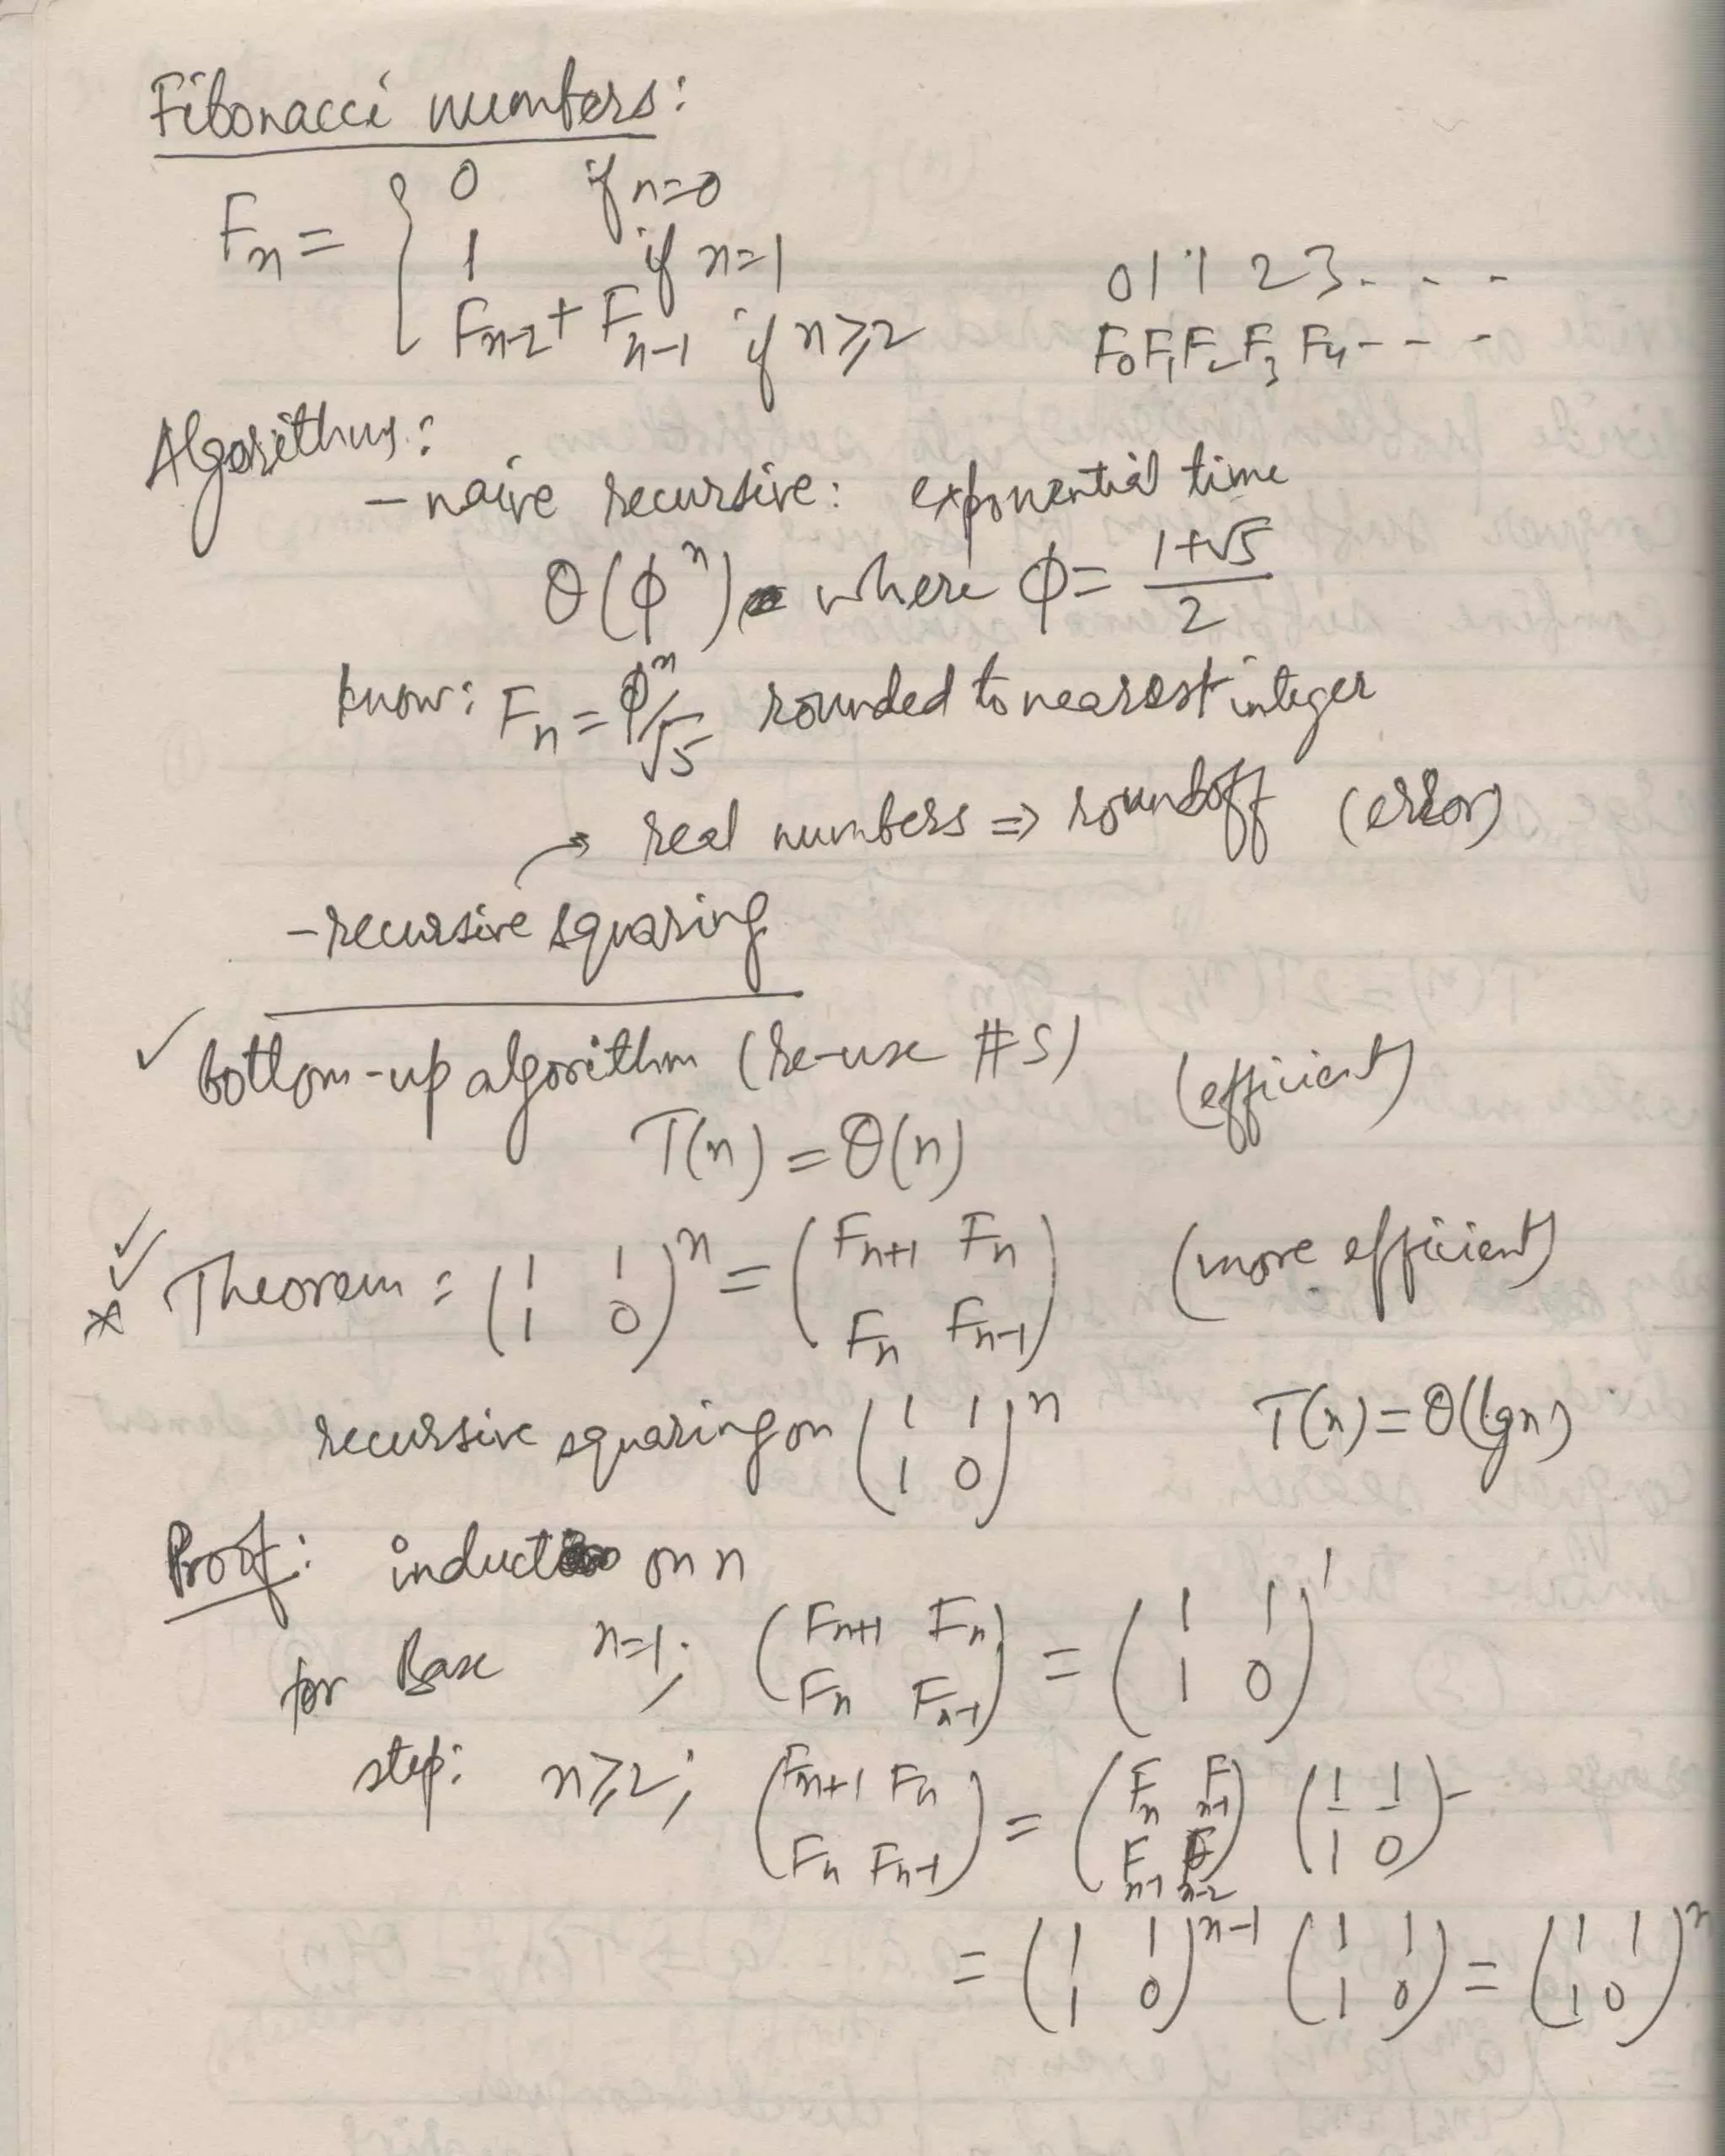 Fibonacci numbers:
F_n = { 0 if n=0
1 if n=1
F_{n-2} + F_{n-1} if n≥2
0 1 1 2 3 - - -
F_0 F_1 F_2 F_3 F_4 - - -
Algorithms:
- naive recursive: exponential time
θ(φ^n) where φ = (1+√5)/2
know: F_n = φ^n/√5 rounded to nearest integer
→ real numbers ⇒ roundoff (error)
- recursive squaring
✓ bottom-up algorithm (re-use #s) (efficient)
T(n) = θ(n)
✓✓ * Theorem: (1 1; 1 0)^n = (F_{n+1} F_n; F_n F_{n-1}) (more efficient)
recursive squaring on (1 1; 1 0)^n T(n) = θ(lgn)
Proof: induction on n
for Base n=1; (F_{n+1} F_n; F_n F_{n-1}) = (1 1; 1 0)^1
step: n≥2; (F_{n+1} F_n; F_n F_{n-1}) = (F_n F_{n-1}; F_{n-1} F_{n-2}) (1 1; 1 0)
= (1 1; 1 0)^{n-1} (1 1; 1 0) = (1 1; 1 0)^n